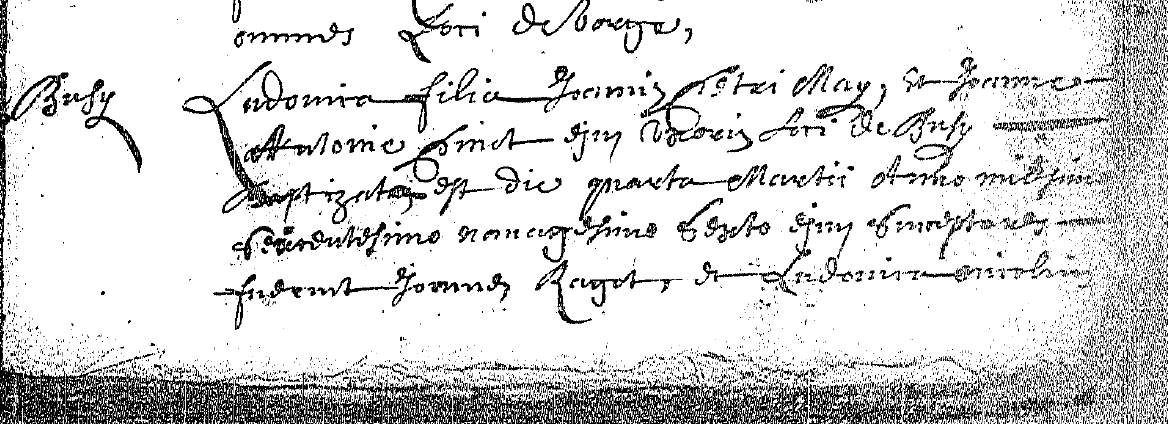 omnes Loci de Vorge,
Busy Ludovica filia Joannis Petri May, et Joanne
Antonie Sinct ejus Uxoris Loci de Busy
Baptizata est die quarta Martii Anno millesimo
Sexcentesimo nonagesimo Sexto ejus Susceptores
fuerunt Joannes Ragot, et Ludovica